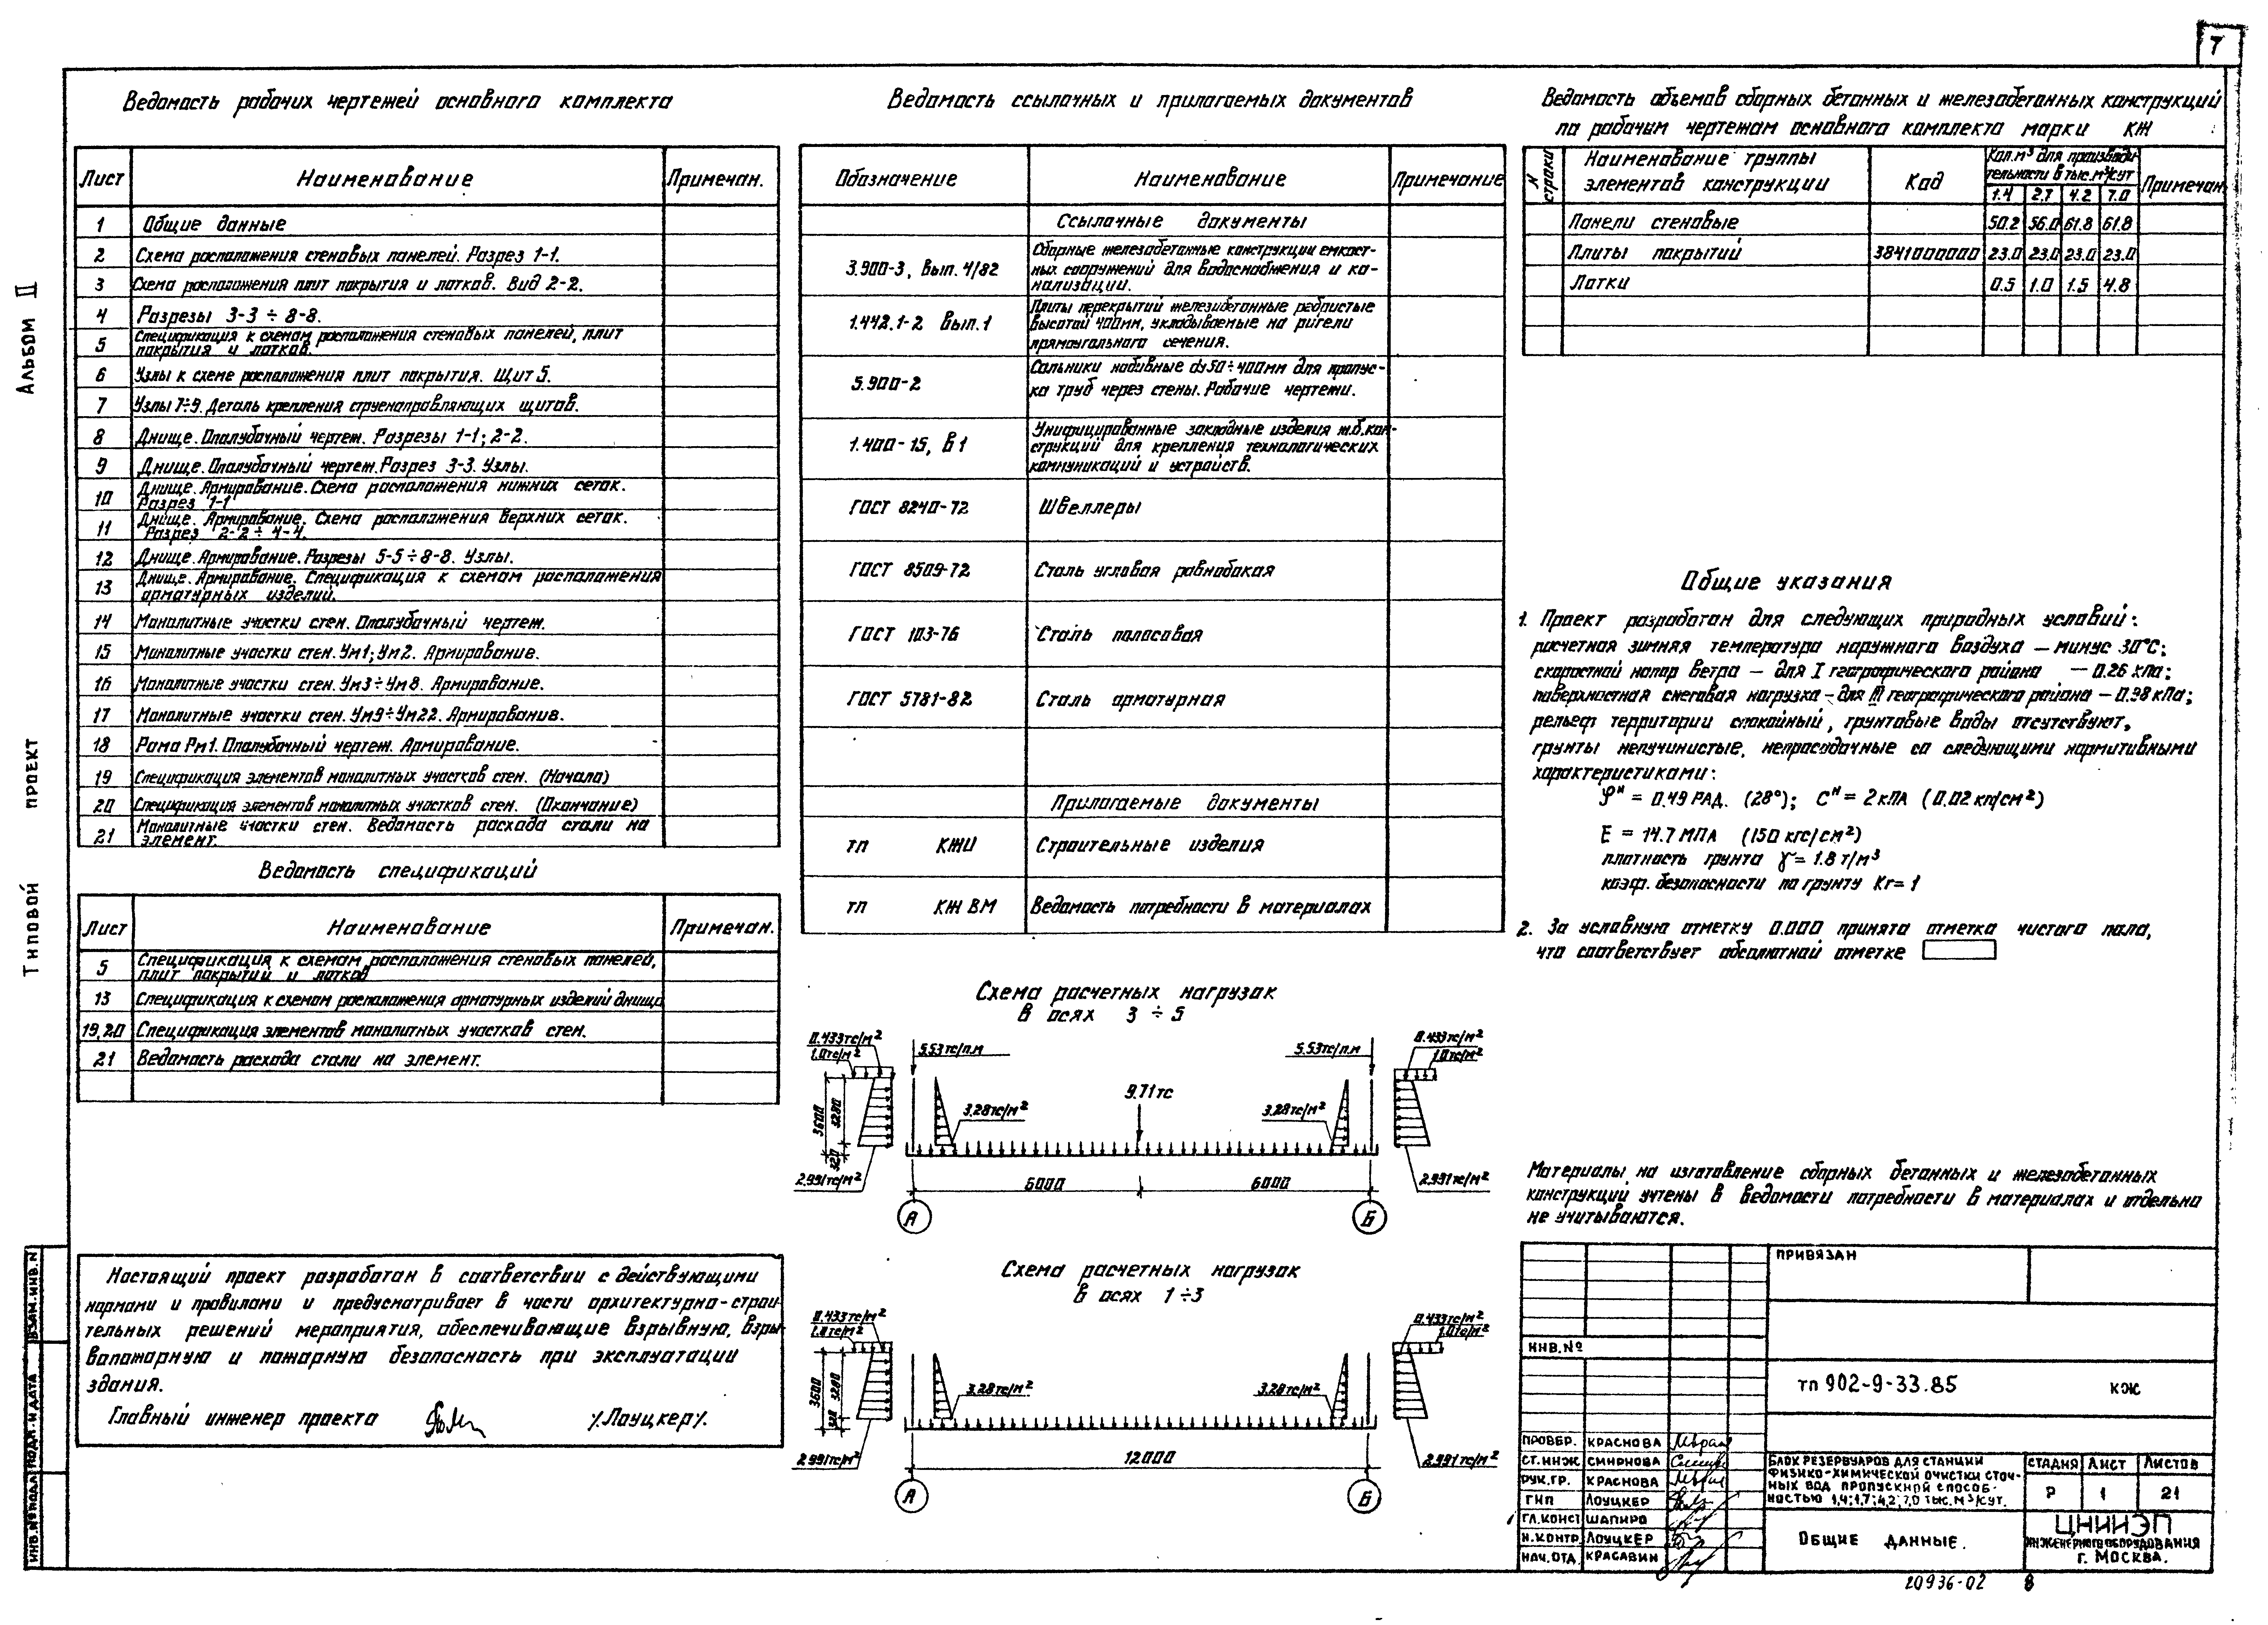 7
Альбом II
Типовой проект
Ведомость рабочих чертежей основного комплекта
Лист Наименование Примечан.
1 Общие данные
2 Схема расположения стеновых панелей. Разрез 1-1.
3 Схема расположения плит покрытия и лотков. Вид 2-2.
4 Разрезы 3-3 ÷ 8-8.
5 Спецификация к схемам расположения стеновых панелей, плит
покрытия и лотков.
6 Узлы к схеме расположения плит покрытия. Щит 5.
7 Узлы 7÷9. Деталь крепления струенаправляющих щитов.
8 Днище. Опалубочный чертеж. Разрезы 1-1; 2-2.
9 Днище. Опалубочный чертеж. Разрез 3-3. Узлы.
10 Днище. Армирование. Схема расположения нижних сеток.
Разрез 1-1
11 Днище. Армирование. Схема расположения верхних сеток.
Разрез 2-2 ÷ 4-4.
12 Днище. Армирование. Разрезы 5-5 ÷ 8-8. Узлы.
13 Днище. Армирование. Спецификация к схемам расположения
арматурных изделий.
14 Монолитные участки стен. Опалубочный чертеж.
15 Монолитные участки стен. Ум1; Ум2. Армирование.
16 Монолитные участки стен. Ум3÷Ум8. Армирование.
17 Монолитные участки стен. Ум9÷Ум22. Армирование.
18 Рама Рм1. Опалубочный чертеж. Армирование.
19 Спецификация элементов монолитных участков стен. (Начало)
20 Спецификация элементов монолитных участков стен. (Окончание)
21 Монолитные участки стен. Ведомость расхода стали на
элемент.
Ведомость спецификаций
Лист Наименование Примечан.
5 Спецификация к схемам расположения стеновых панелей,
плит покрытий и лотков
13 Спецификация к схемам расположения арматурных изделий днища
19,20 Спецификация элементов монолитных участков стен.
21 Ведомость расхода стали на элемент.
Настоящий проект разработан в соответствии с действующими
нормами и правилами и предусматривает в части архитектурно-строи-
тельных решений мероприятия, обеспечивающие взрывную, взры-
вопожарную и пожарную безопасность при эксплуатации
здания.
Главный инженер проекта /Лоуцкер/.
Ведомость ссылочных и прилагаемых документов
Обозначение Наименование Примечание
Ссылочные документы
3.900-3, Вып. 4/82 Сборные железобетонные конструкции емкост-
ных сооружений для водоснабжения и ка-
нализации.
1.442.1-2 Вып.1 Плиты перекрытий железобетонные ребристые
высотой 400мм, укладываемые на ригели
прямоугольного сечения.
5.900-2 Сальники набивные dу50÷400мм для пропус-
ка труб через стены. Рабочие чертежи.
1.400-15, В1 Унифицированные закладные изделия ж.б. кон-
струкций для крепления технологических
коммуникаций и устройств.
ГОСТ 8240-72 Швеллеры
ГОСТ 8509-72 Сталь угловая равнобокая
ГОСТ 103-76 Сталь полосовая
ГОСТ 5781-82 Сталь арматурная
Прилагаемые документы
ТП КЖИ Строительные изделия
ТП КЖ ВМ Ведомость потребности в материалах
Схема расчетных нагрузок
в осях 3 ÷ 5
0.433тс/м² 5.53тс/п.м 5.53тс/п.м 0.433тс/м²
1.0тс/м² 1.0тс/м²
9.71тс
3600 3280 3.28тс/м² 3.28тс/м²
320
2.991тс/м² 6000 6000 2.991тс/м²
А Б
Схема расчетных нагрузок
в осях 1÷3
0.433тс/м² 0.433тс/м²
1.0тс/м² 1.0тс/м²
3600 3280 3.28тс/м² 3.28тс/м²
320
2.991тс/м² 12000 2.991тс/м²
А Б
Ведомость объемов сборных бетонных и железобетонных конструкций
по рабочим чертежам основного комплекта марки КЖ
N строки Наименование группы элементов конструкции Код Кол.м³ для производи-тельности в тыс.м³/сут Примечан.
1.4 2.7 4.2 7.0
Панели стеновые 50.2 56.0 61.8 61.8
Плиты покрытий 3841000000 23.0 23.0 23.0 23.0
Лотки 0.5 1.0 1.5 4.8
Общие указания
1. Проект разработан для следующих природных условий:
расчетная зимняя температура наружного воздуха — минус 30°С;
скоростной напор ветра — для I географического района — 0.26 кПа;
поверхностная снеговая нагрузка - для III географического района — 0.98 кПа;
рельеф территории спокойный, грунтовые воды отсутствуют,
грунты непучинистые, непросадочные со следующими нормативными
характеристиками:
φᴴ = 0.49 РАД. (28°); Cᴴ = 2кПА (0.02 кг/см²)
E = 14.7 МПА (150 кгс/см²)
плотность грунта γ = 1.8 т/м³
коэф. безопасности по грунту Кг = 1
2. За условную отметку 0.000 принята отметка чистого пола,
что соответствует абсолютной отметке
Материалы на изготовление сборных бетонных и железобетонных
конструкций учтены в ведомости потребности в материалах и отдельно
не учитываются.
ПРИВЯЗАН
ИНВ.№
ТП 902-9-33.85 КЖ
ПРОВЕР. КРАСНОВА
СТ.ИНЖ. СМИРНОВА
РУК.ГР. КРАСНОВА
ГИП ЛОУЦКЕР
ГЛ.КОНСТ ШАПИРО
Н.КОНТР. ЛОУЦКЕР
НАЧ.ОТД. КРАСАВИН
БЛОК РЕЗЕРВУАРОВ ДЛЯ СТАНЦИИ
ФИЗИКО-ХИМИЧЕСКОЙ ОЧИСТКИ СТОЧ-
НЫХ ВОД ПРОПУСКНОЙ СПОСОБ-
НОСТЬЮ 1,4; 1,7; 4,2; 7,0 ТЫС.М³/СУТ.
СТАДИЯ ЛИСТ ЛИСТОВ
Р 1 21
ОБЩИЕ ДАННЫЕ.
ЦНИИЭП
ИНЖЕНЕРНОГО ОБОРУДОВАНИЯ
Г. МОСКВА.
20936-02 8
ИНВ.№ ПОДЛ. ПОДП. И ДАТА ВЗАМ.ИНВ.N